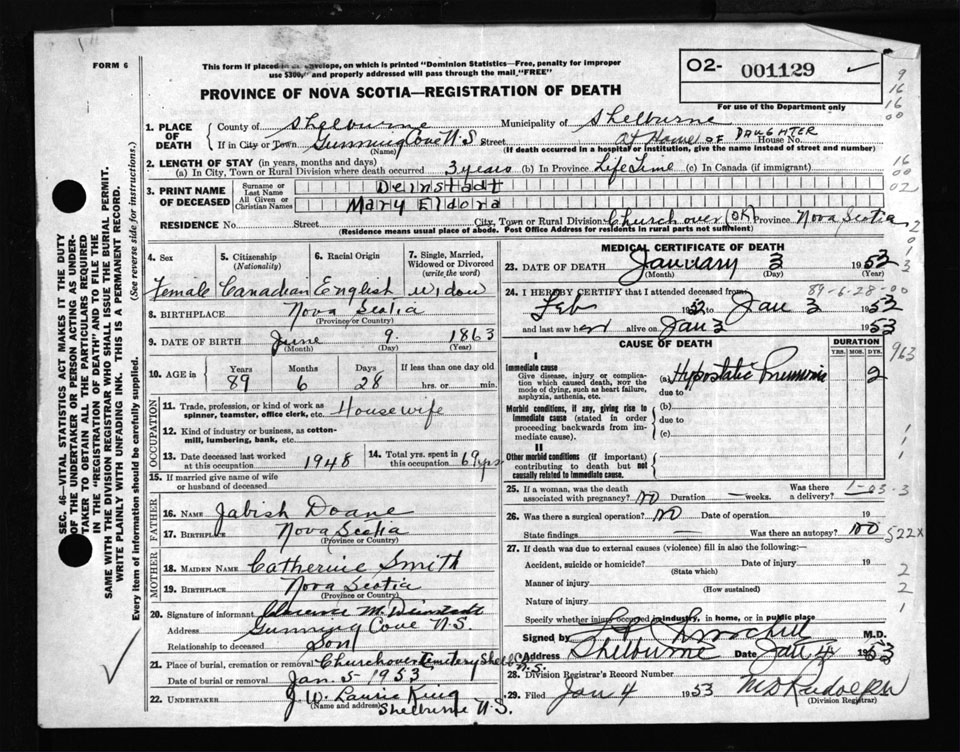 FORM 6
This form if placed in envelope, on which is printed "Dominion Statistics—Free, penalty for improper
use $300," and properly addressed will pass through the mail "FREE"
O2- 001129
PROVINCE OF NOVA SCOTIA—REGISTRATION OF DEATH
For use of the Department only
9
16
16
00
1. PLACE OF DEATH
County of Shelburne Municipality of Shelburne
If in City or Town Gunning Cove N.S Street At Home OF DAUGHTER House No.
(Name) (If death occurred in a hospital or institution, give the name instead of street and number)
2. LENGTH OF STAY (in years, months and days)
(a) In City, Town or Rural Division where death occurred 3 years (b) In Province Life Time (c) In Canada (if immigrant)
16
00
02
3. PRINT NAME OF DECEASED
Surname or Last Name Deinstadt
All Given or Christian Names Mary Eldora
RESIDENCE No. Street City, Town or Rural Division Churchover (OK) Province Nova Scotia
(Residence means usual place of abode. Post Office Address for residents in rural parts not sufficient)
2
0
1
3
4. Sex 5. Citizenship (Nationality) 6. Racial Origin 7. Single, Married, Widowed or Divorced (write the word)
Female Canadian English widow
8. BIRTHPLACE Nova Scotia
(Province or Country)
9. DATE OF BIRTH June 9. 1863
(Month) (Day) (Year)
10. AGE in Years Months Days If less than one day old
89 6 28 hrs. or min.
OCCUPATION
11. Trade, profession, or kind of work as spinner, teamster, office clerk, etc. Housewife
12. Kind of industry or business, as cotton-mill, lumbering, bank, etc.
13. Date deceased last worked at this occupation 1948
14. Total yrs. spent in this occupation 69 yrs
15. If married give name of wife or husband of deceased
FATHER
16. NAME Jabish Doane
17. BIRTHPLACE Nova Scotia
(Province or Country)
MOTHER
18. MAIDEN NAME Catherine Smith
19. BIRTHPLACE Nova Scotia
(Province or Country)
20. Signature of informant Clarence M. Deinstadt
Address Gunning Cove N.S.
Relationship to deceased Son
21. Place of burial, cremation or removal Churchover Cemetery Shelb. N.S.
Date of burial or removal Jan. 5 1953
22. UNDERTAKER J. W. Laurie King
(Name and address) Shelburne N.S.
MEDICAL CERTIFICATE OF DEATH
23. DATE OF DEATH January 3 1953
(Month) (Day) (Year)
24. I HEREBY CERTIFY that I attended deceased from 89-6-28-00
Feb 1952 to Jan 3 1953
and last saw her alive on Jan 3 1953
CAUSE OF DEATH
DURATION
YRS. MOS. DYS.
963
I
Immediate cause
Give disease, injury or complication which caused death, NOT the mode of dying, such as heart failure, asphyxia, asthenia, etc.
(a) Hypostatic Pneumonia 2
due to
Morbid conditions, if any, giving rise to immediate cause (stated in order proceeding backwards from immediate cause).
(b)
due to
(c)
II
Other morbid conditions (if important) contributing to death but not causally related to immediate cause.
1
1
25. If a woman, was the death associated with pregnancy? NO Duration — weeks. Was there a delivery?
1-03-3
26. Was there a surgical operation? NO Date of operation 19
State findings — Was there an autopsy? NO
522X
27. If death was due to external causes (violence) fill in also the following:—
Accident, suicide or homicide? Date of injury 19
(State which)
Manner of injury
(How sustained)
Nature of injury
Specify whether injury occurred in industry, in home, or in public place
2
2
1
Signed by M.D.
Address Shelburne Date Jan 4 1953
28. Division Registrar's Record Number
29. Filed Jan 4 1953
(Division Registrar)
SEC. 46—VITAL STATISTICS ACT MAKES IT THE DUTY
OF THE UNDERTAKER OR PERSON ACTING AS UNDER-
TAKER TO OBTAIN ALL THE PARTICULARS REQUIRED
IN THE "REGISTRATION OF DEATH" AND TO FILE THE
SAME WITH THE DIVISION REGISTRAR WHO SHALL ISSUE THE BURIAL PERMIT.
WRITE PLAINLY WITH UNFADING INK. THIS IS A PERMANENT RECORD.
Every item of information should be carefully supplied. (See reverse side for instructions.)